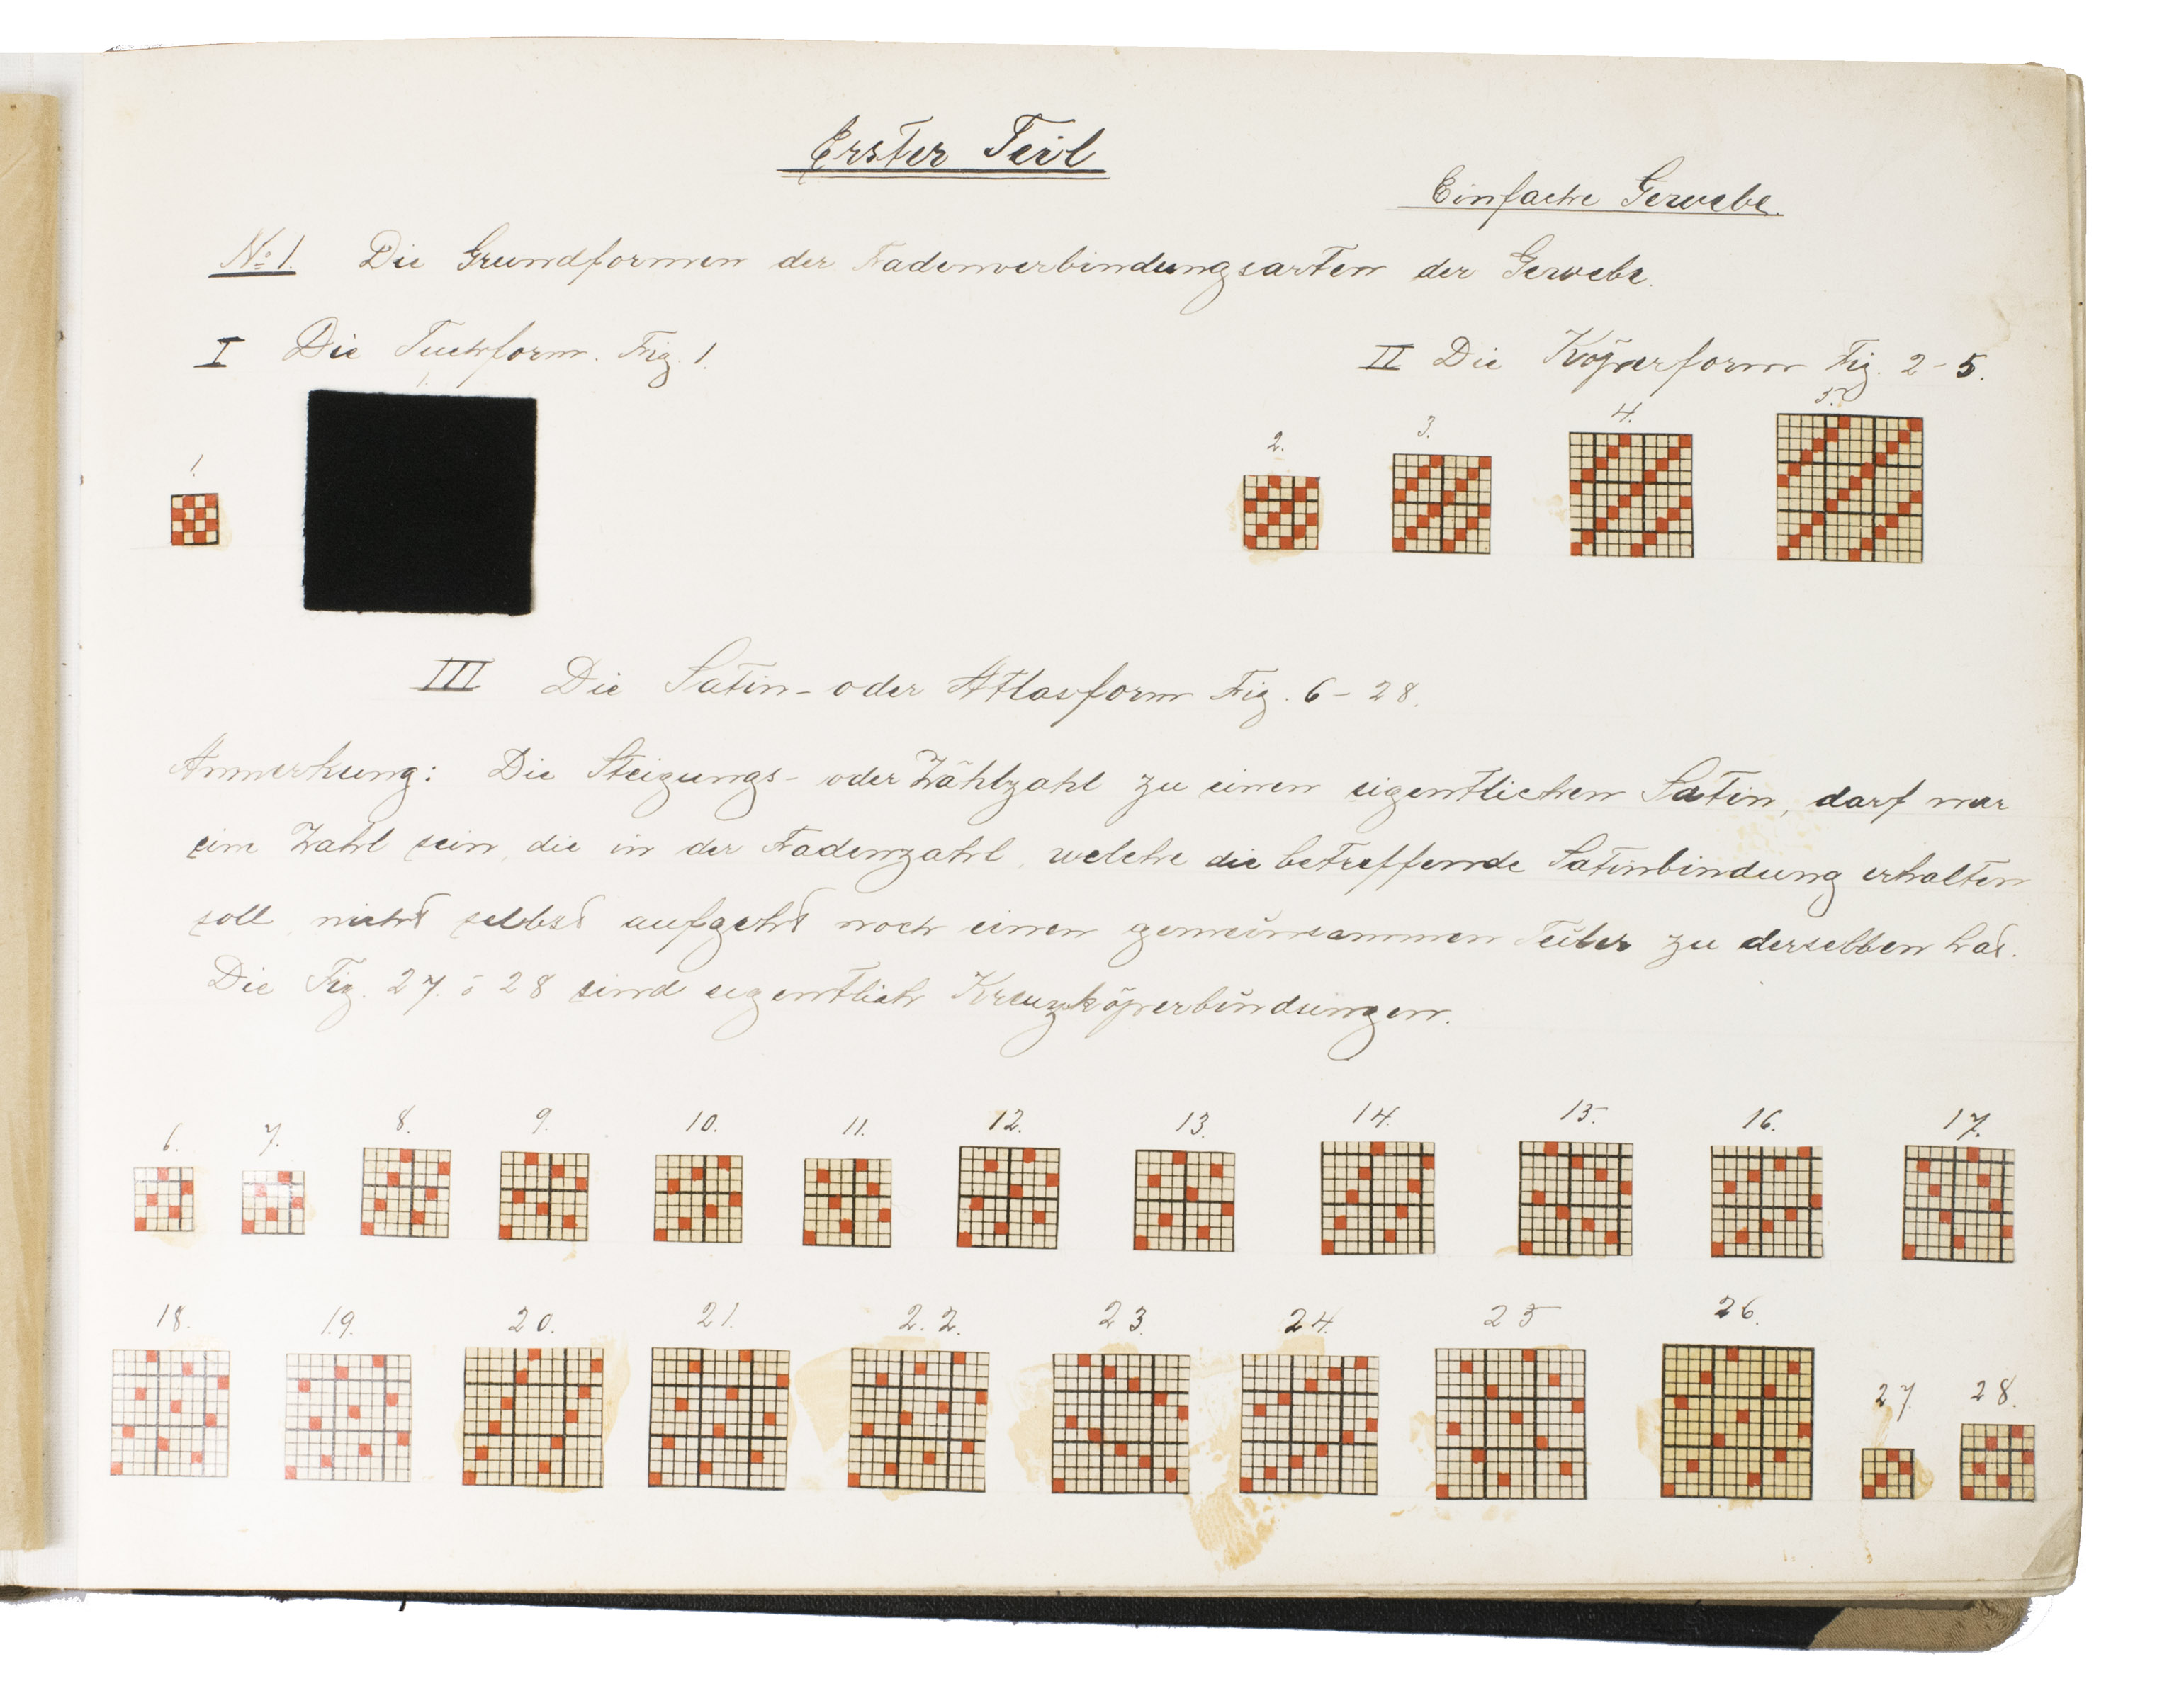 Erster Teil
Einfache Gewebe.
No 1. Die Grundformen der Fadenverbindungsarten der Gewebe.
I Die Tuchform. Fig. 1.
II Die Köperform Fig. 2-5.
1.
1.
2.
3.
4.
5.
III Die Satin- oder Atlasform Fig. 6-28.
Anmerkung: Die Steigungs- oder Zählzahl zu einen eigentlichen Satin, darf nur
eine Zahl sein, die in der Fadenzahl, welche die betreffende Satinbindung erhalten
soll, nicht selbst aufgeht noch einen gemeinsammen Teiler zu derselben hat.
Die Fig. 27. 28 sind eigentlich Kreuzköperbindungen.
6. 7. 8. 9. 10. 11. 12. 13. 14. 15. 16. 17.
18. 19. 20. 21. 22. 23. 24. 25 26. 27. 28.